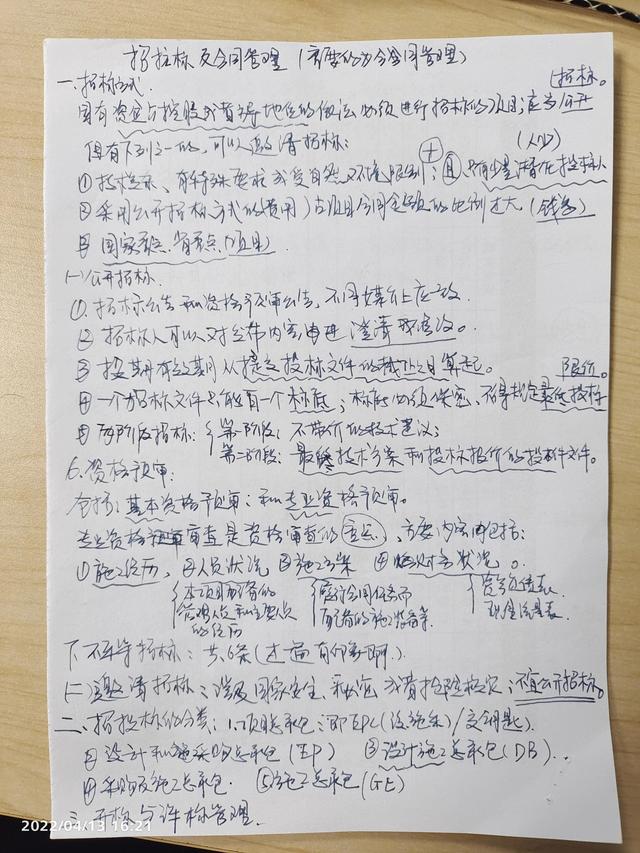 招投标及合同管理(主要的为合同管理)
一、招标方式
招标。
国有资金占控股或者主导地位的依法必须进行招标的项目;应当公开
但有下列之一的,可以邀请招标:
(人少)
① 技术复杂、有特殊要求或受自然环境限制;且只有少量潜在投标人
② 采用公开招标方式的费用占项目合同金额的比例过大(钱多)
③ 国家重点、省重点项目
(一)公开招标
① 招标公告和资格预审公告,不同媒介上应一致
② 招标人可以对发布内容进 澄清或修改。
③ 投标有效期从提交投标文件的截止之日算起。
限价。
④ 一个招标文件只能有一个标底;标底必须保密、不得规定最低投标
⑤ 两阶段招标:第一阶段:不带价的技术建议;
第二阶段:最终技术方案和投标报价的投标文件。
6、资格预审:
包括:基本资格预审;和专业资格预审。
专业资格审查是资格审查的重点、主要内容包括:
①施工经历、②人员状况 ③施工方案 ④财务状况。
本项目配备的
管理人员和主要人员
的经历
履行合同任务而
配备的施工装备等
资产负债表
现金流量表
7、不平等招标:共6条
(二)邀请招标:涉及国家安全、秘密或者抢险救灾;不宜公开招标。
二、招投标的分类:1、项目总承包:即EPC(设施采)/交钥匙)
② 设计和采购总承包(EP) ③设计施工总承包(DB)
④采购及施工总承包 ⑤施工总承包(GC)
三、开标与评标管理
2022/04/13 16:21